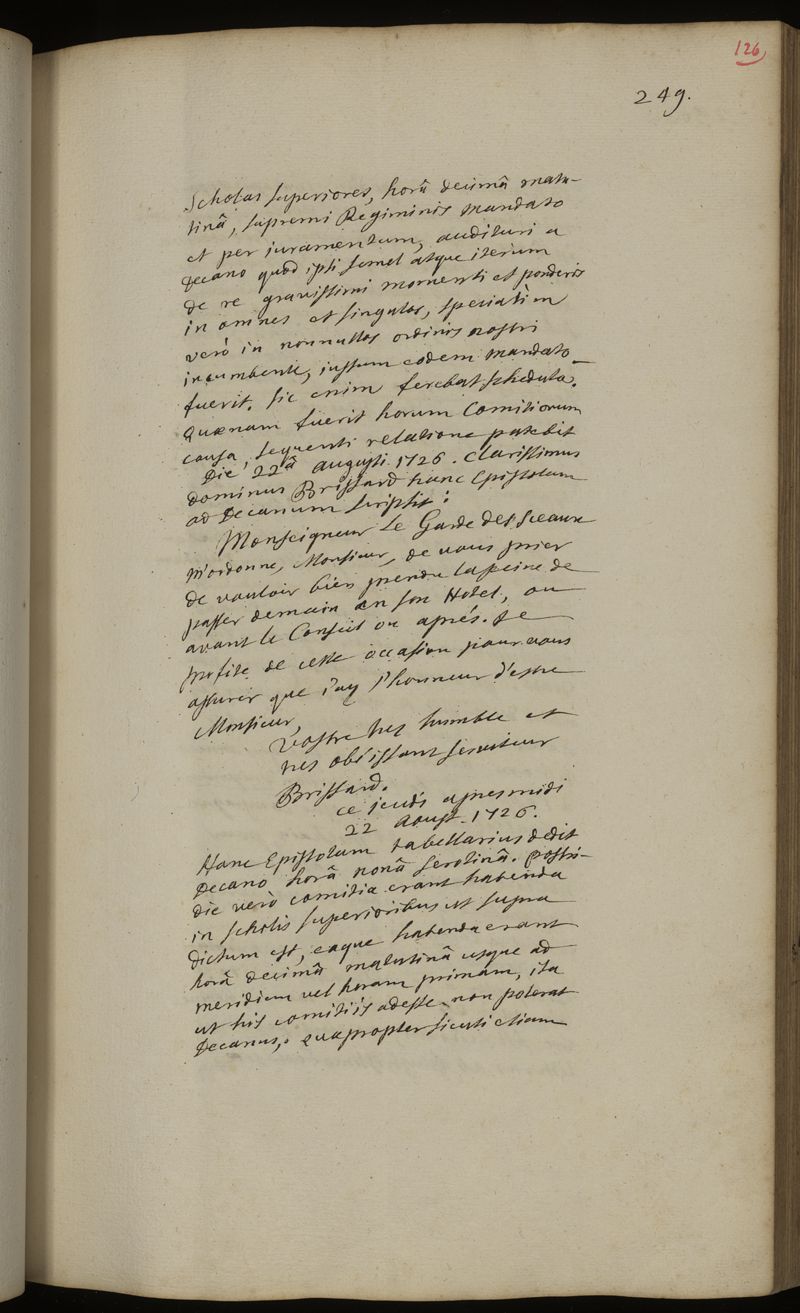 126
249.
Scholas superiores, horâ decimâ matu-
tinâ, supremi Regiminis mandato
et per juramentum, audituri a
Decano quod ipsi semel atque iterum
de re gravissimi momenti et ponderis
in omnes et singulos, speciatim
verò in nonnullos ordinis nostri
incumbente, jussum eodem mandato
fuerit. sic enim ferebat schedula.
Quænam fuerit horum Comitiorum
causa, sequenti relatione patebit
Die 22â augusti 1726. Clarissimus
dominus Brissard hanc Epistolam
ad Decanum scripsit:
Monseigneur Le Garde des sceaux
m'ordonne, Monsieur, de vous prier
de vouloir bien prendre la peine de
passer demain en son Hotel, ou
avant le Conseil ou aprés. Je
profite de cette occasion pour vous
assurer que j'ay l'honneur d'estre
Monsieur,
Vostre tres humble et
tres obéissant serviteur
Brissard.
ce jeudi apres midi
22 Aoust. 1726.
Hanc Epistolam tabellarius dedit
Decano horâ nonâ serotinâ. postri-
die verò comitia erant habenda
in scholis superioribus ut supra
dictum est, eaque habenda erant
horâ decimâ matutinâ usque ad
meridiem vel horam primam, ita
ut his comitiis adesse non poterat
Decanus,. quapropter sicuti etiam